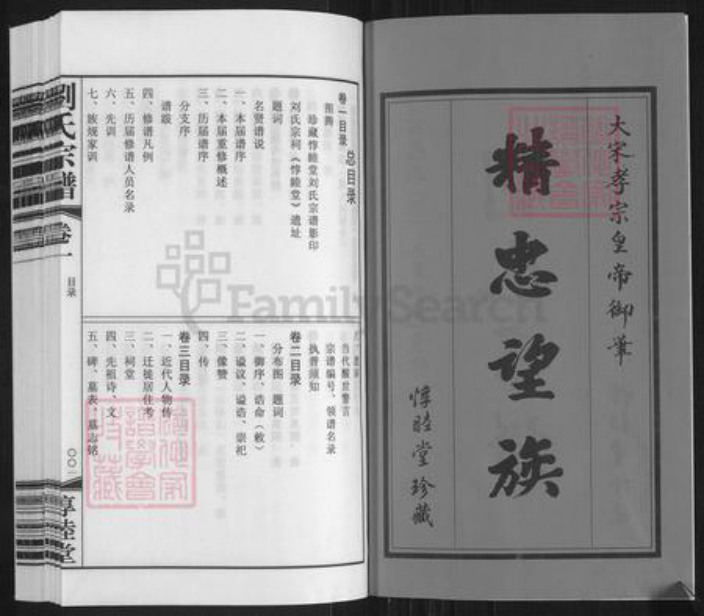 大宋孝宗皇帝御筆
精忠望族
惇睦堂珍藏
总目录
卷一目录
图腾
珍藏惇睦堂刘氏宗谱影印
刘氏宗祠《惇睦堂》遗址
题词
名贤谱说
一、本届谱序
二、本届重修概述
三、历届谱序
分支序
谱跋
四、修谱凡例
五、历届修谱人员名录
六、先训
七、族规家训
当代醒世警言
宗谱编号、领谱名录
执普须知
卷二目录
分布图 题词
一、御序、诰命（敕）
二、谥议、谥诰、崇祀
三、像赞
四、传
卷三目录
一、近代人物传
二、迁徙居住考
三、祠堂
四、先祖诗、文
五、碑、墓表、墓志铭
劉氏宗譜 卷一 目录
〇〇一
惇睦堂
FamilySearch